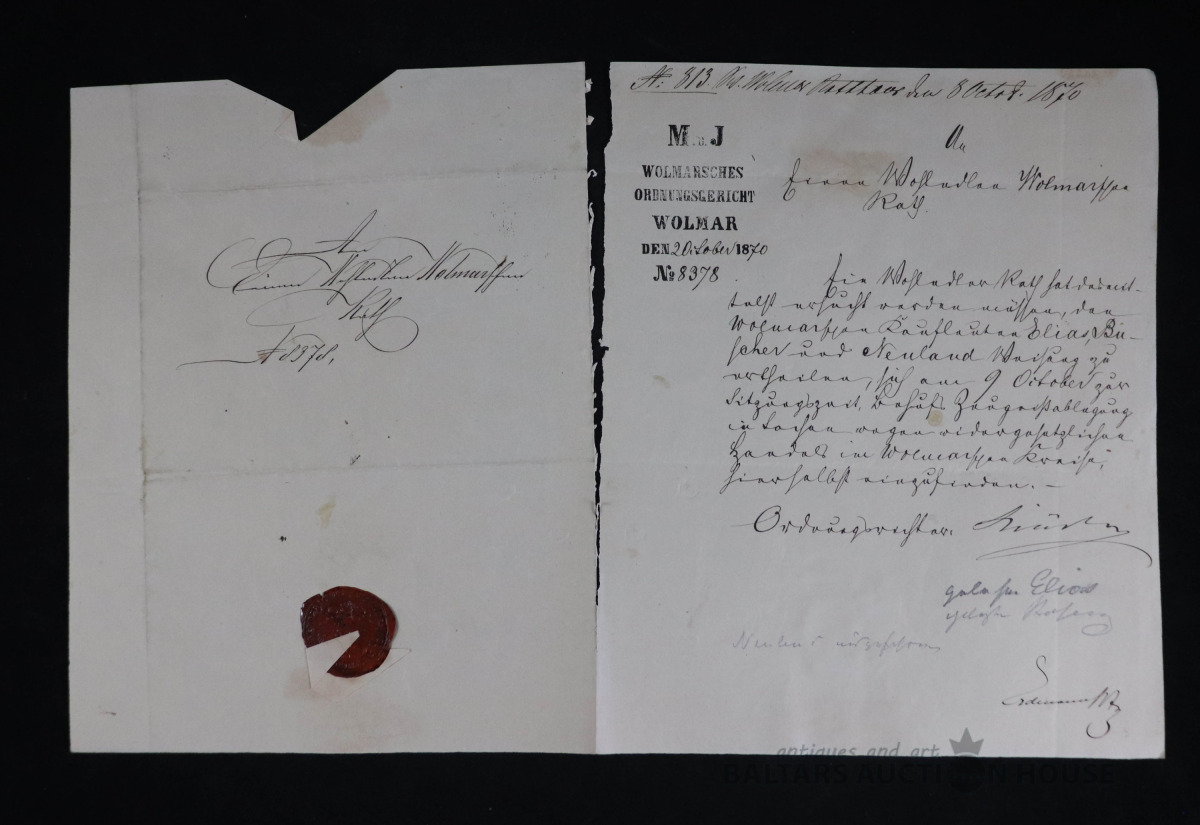 An
Einen Wohledlen Wolmarschen
Rath
№ 8378.
№: 813. Wolmar Rathhaus den 8 Octob. 1870
M. d. J
WOLMARSCHES
ORDNUNGSGERICHT
WOLMAR
DEN 2 October 1870
№ 8378
An
Einen Wohledlen Wolmarschen
Rath.
Ein Wohledler Rath hat desmit-
telst ersucht werden müssen, den
Wolmarschen Kaufleuten Elias, Bü-
scher und Neuland Weisung zu
ertheilen, sich am 9 October zur
Sitzungszeit, behufs Zeugnißablegung
in Sachen wegen widergesetzlichen
Handels im Wolmarschen Kreise,
hierselbst einzufinden. –
Ordnungsrichter:
gelesen Elias
gelesen
antiques and art
BALTARS AUCTION HOUSE